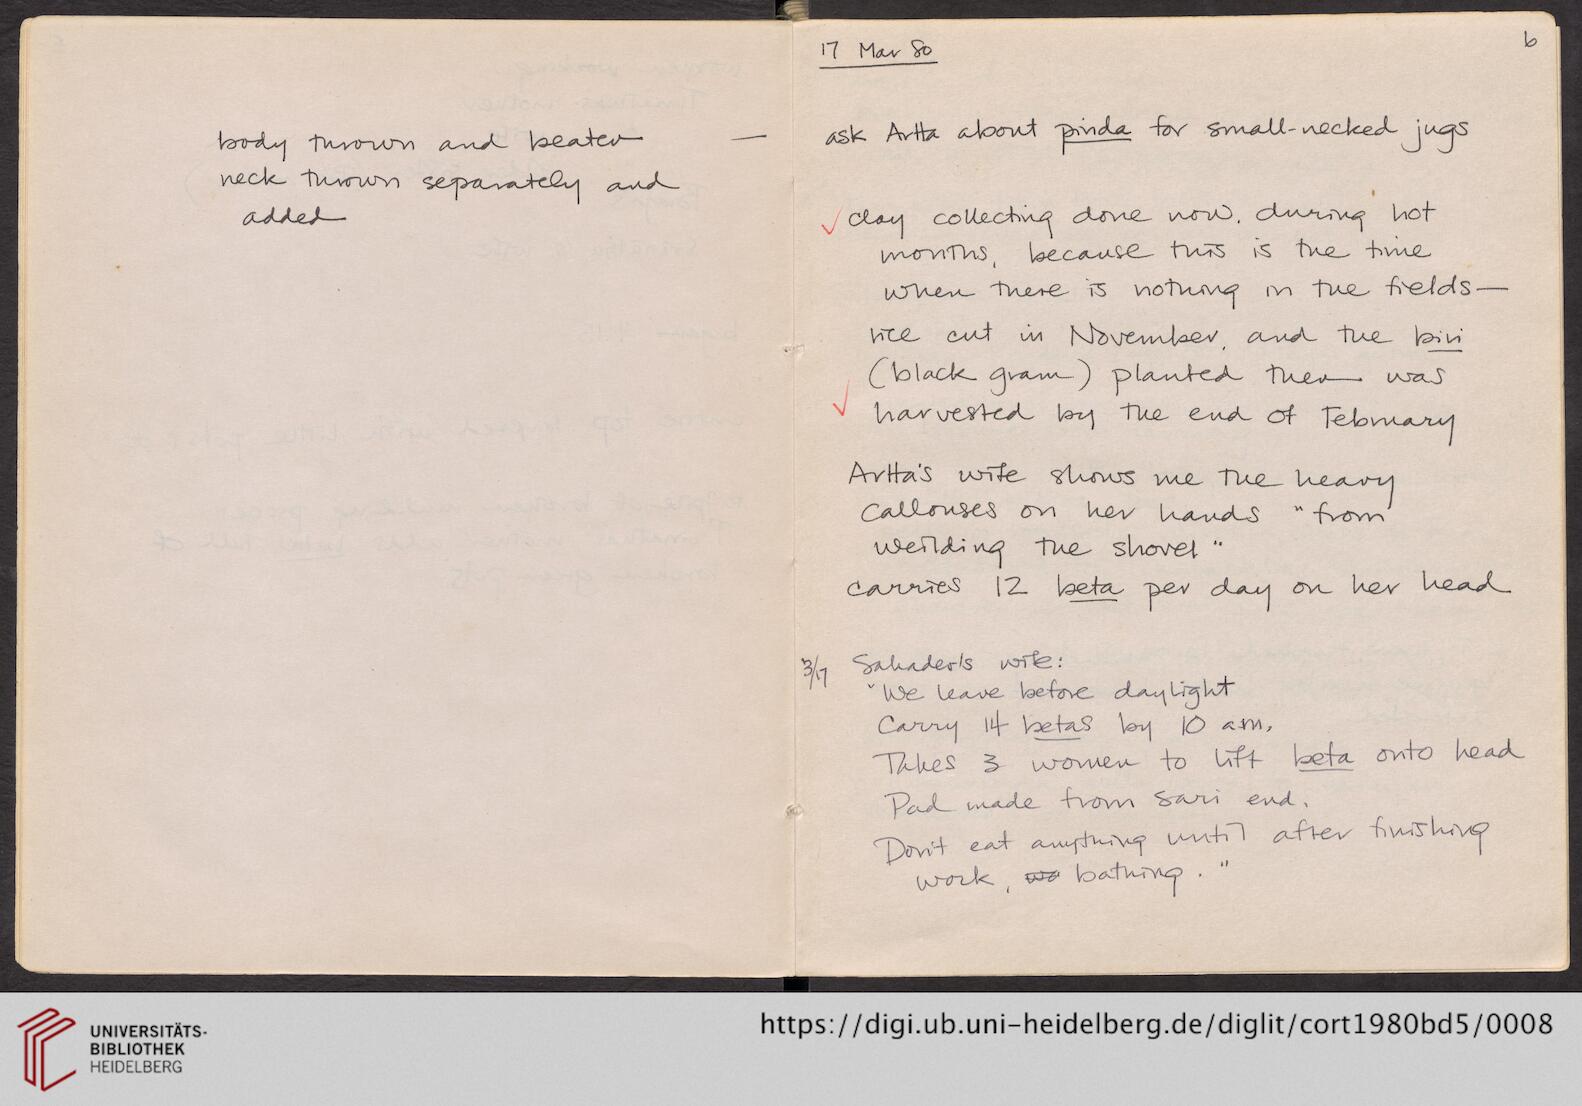 body thrown and beaten —
neck thrown separately and
added
17 Mar 80
6
ask Artta about pinda for small-necked jugs
✓ clay collecting done now, during hot
months, because this is the time
when there is nothing in the fields—
rice cut in November, and the biri
(black gram) planted then was
✓ harvested by the end of February
Artta's wife shows me the heavy
callouses on her hands "from
weilding the shovel"
carries 12 beta per day on her head
3/17 Sahadev's wife:
"We leave before daylight
Carry 14 betas by 10 am.
Takes 3 women to lift beta onto head
Pad made from sari end.
Don't eat anything until after finishing
work, wo bathing."
UNIVERSITÄTS-
BIBLIOTHEK
HEIDELBERG
https://digi.ub.uni-heidelberg.de/diglit/cort1980bd5/0008